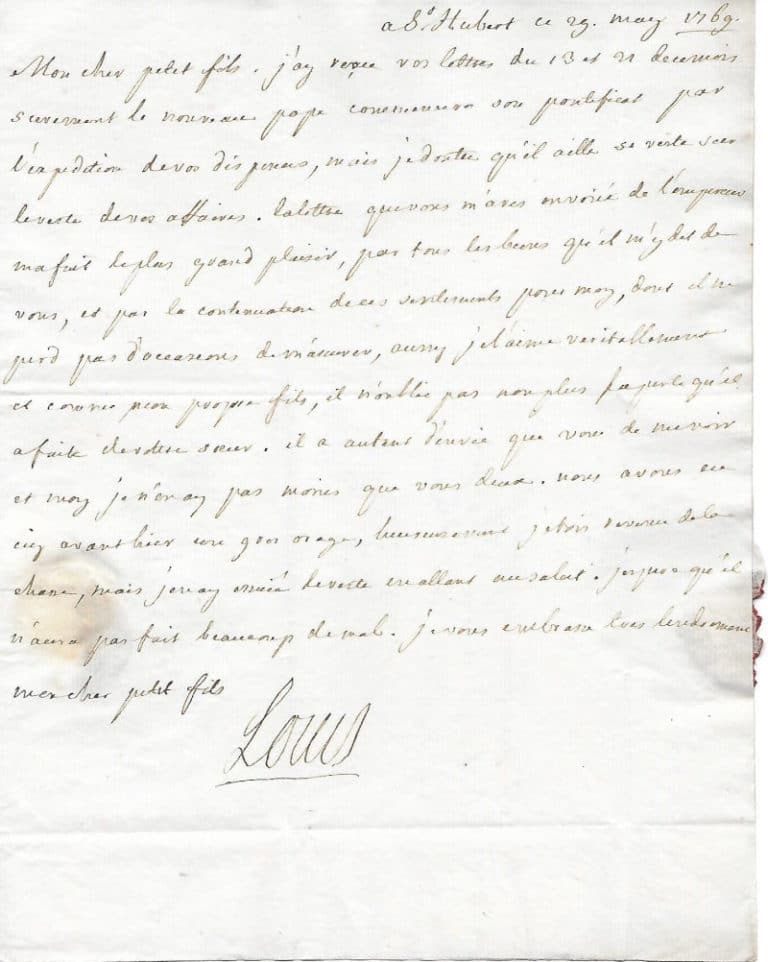 a St Hubert ce 29. may 1769.
Mon cher petit fils. j'ay reçeu vos lettres du 13 et 21 de ce mois
surement le nouveau pape commencera son pontificat par
l'expedition de vos dispenses, mais je doute qu'il aille si viste sur
le reste de vos affaires. la lettre que vous m'avés envoiée de l'empereur
m'a fait le plus grand plaisir, par tous les biens qu'il m'y dit de
vous, et par la continuation de ces sentiments pour moy, dont il ne
perd pas d'occasions de m'assurer, aussy je l'aime veritablement
et comme mon propre fils, il n'oublie pas non plus la perte qu'il
a faite de votre sœur. il a autant d'envie que vous de me voir
et moy je n'en ay pas moins que vous deux. nous avons eu
icy avant hier un gros orage, heureusement j'etois revenu de la
chasse, mais j'en ay essuié le reste en allant au salut. j'espere qu'il
n'aura pas fait beaucoup de mal. je vous embrasse tres tendrement
mon cher petit fils
Louis